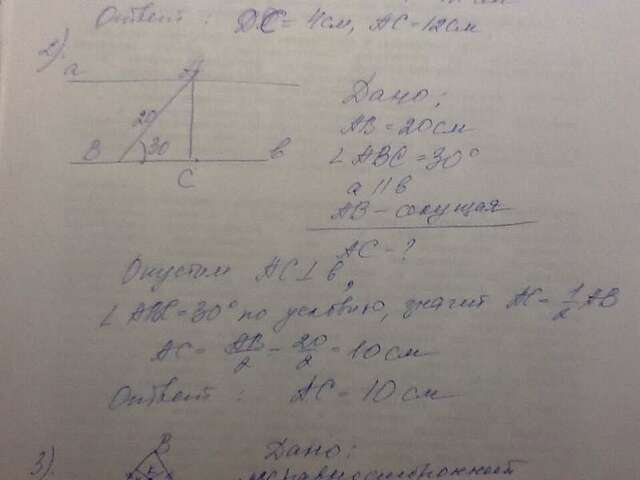 Ответ: DC = 4см, AC = 12см
2).
a
A
20
B
30
C
в
Дано:
AB = 20см
∠ABC = 30°
a || в
AB – секущая
AC – ?
Опустим AC ⊥ в,
∠ABC = 30° по условию, значит AC = 1/2 AB
AC = AB/2 = 20/2 = 10 см
Ответ: AC = 10 см
3).
B
Дано: